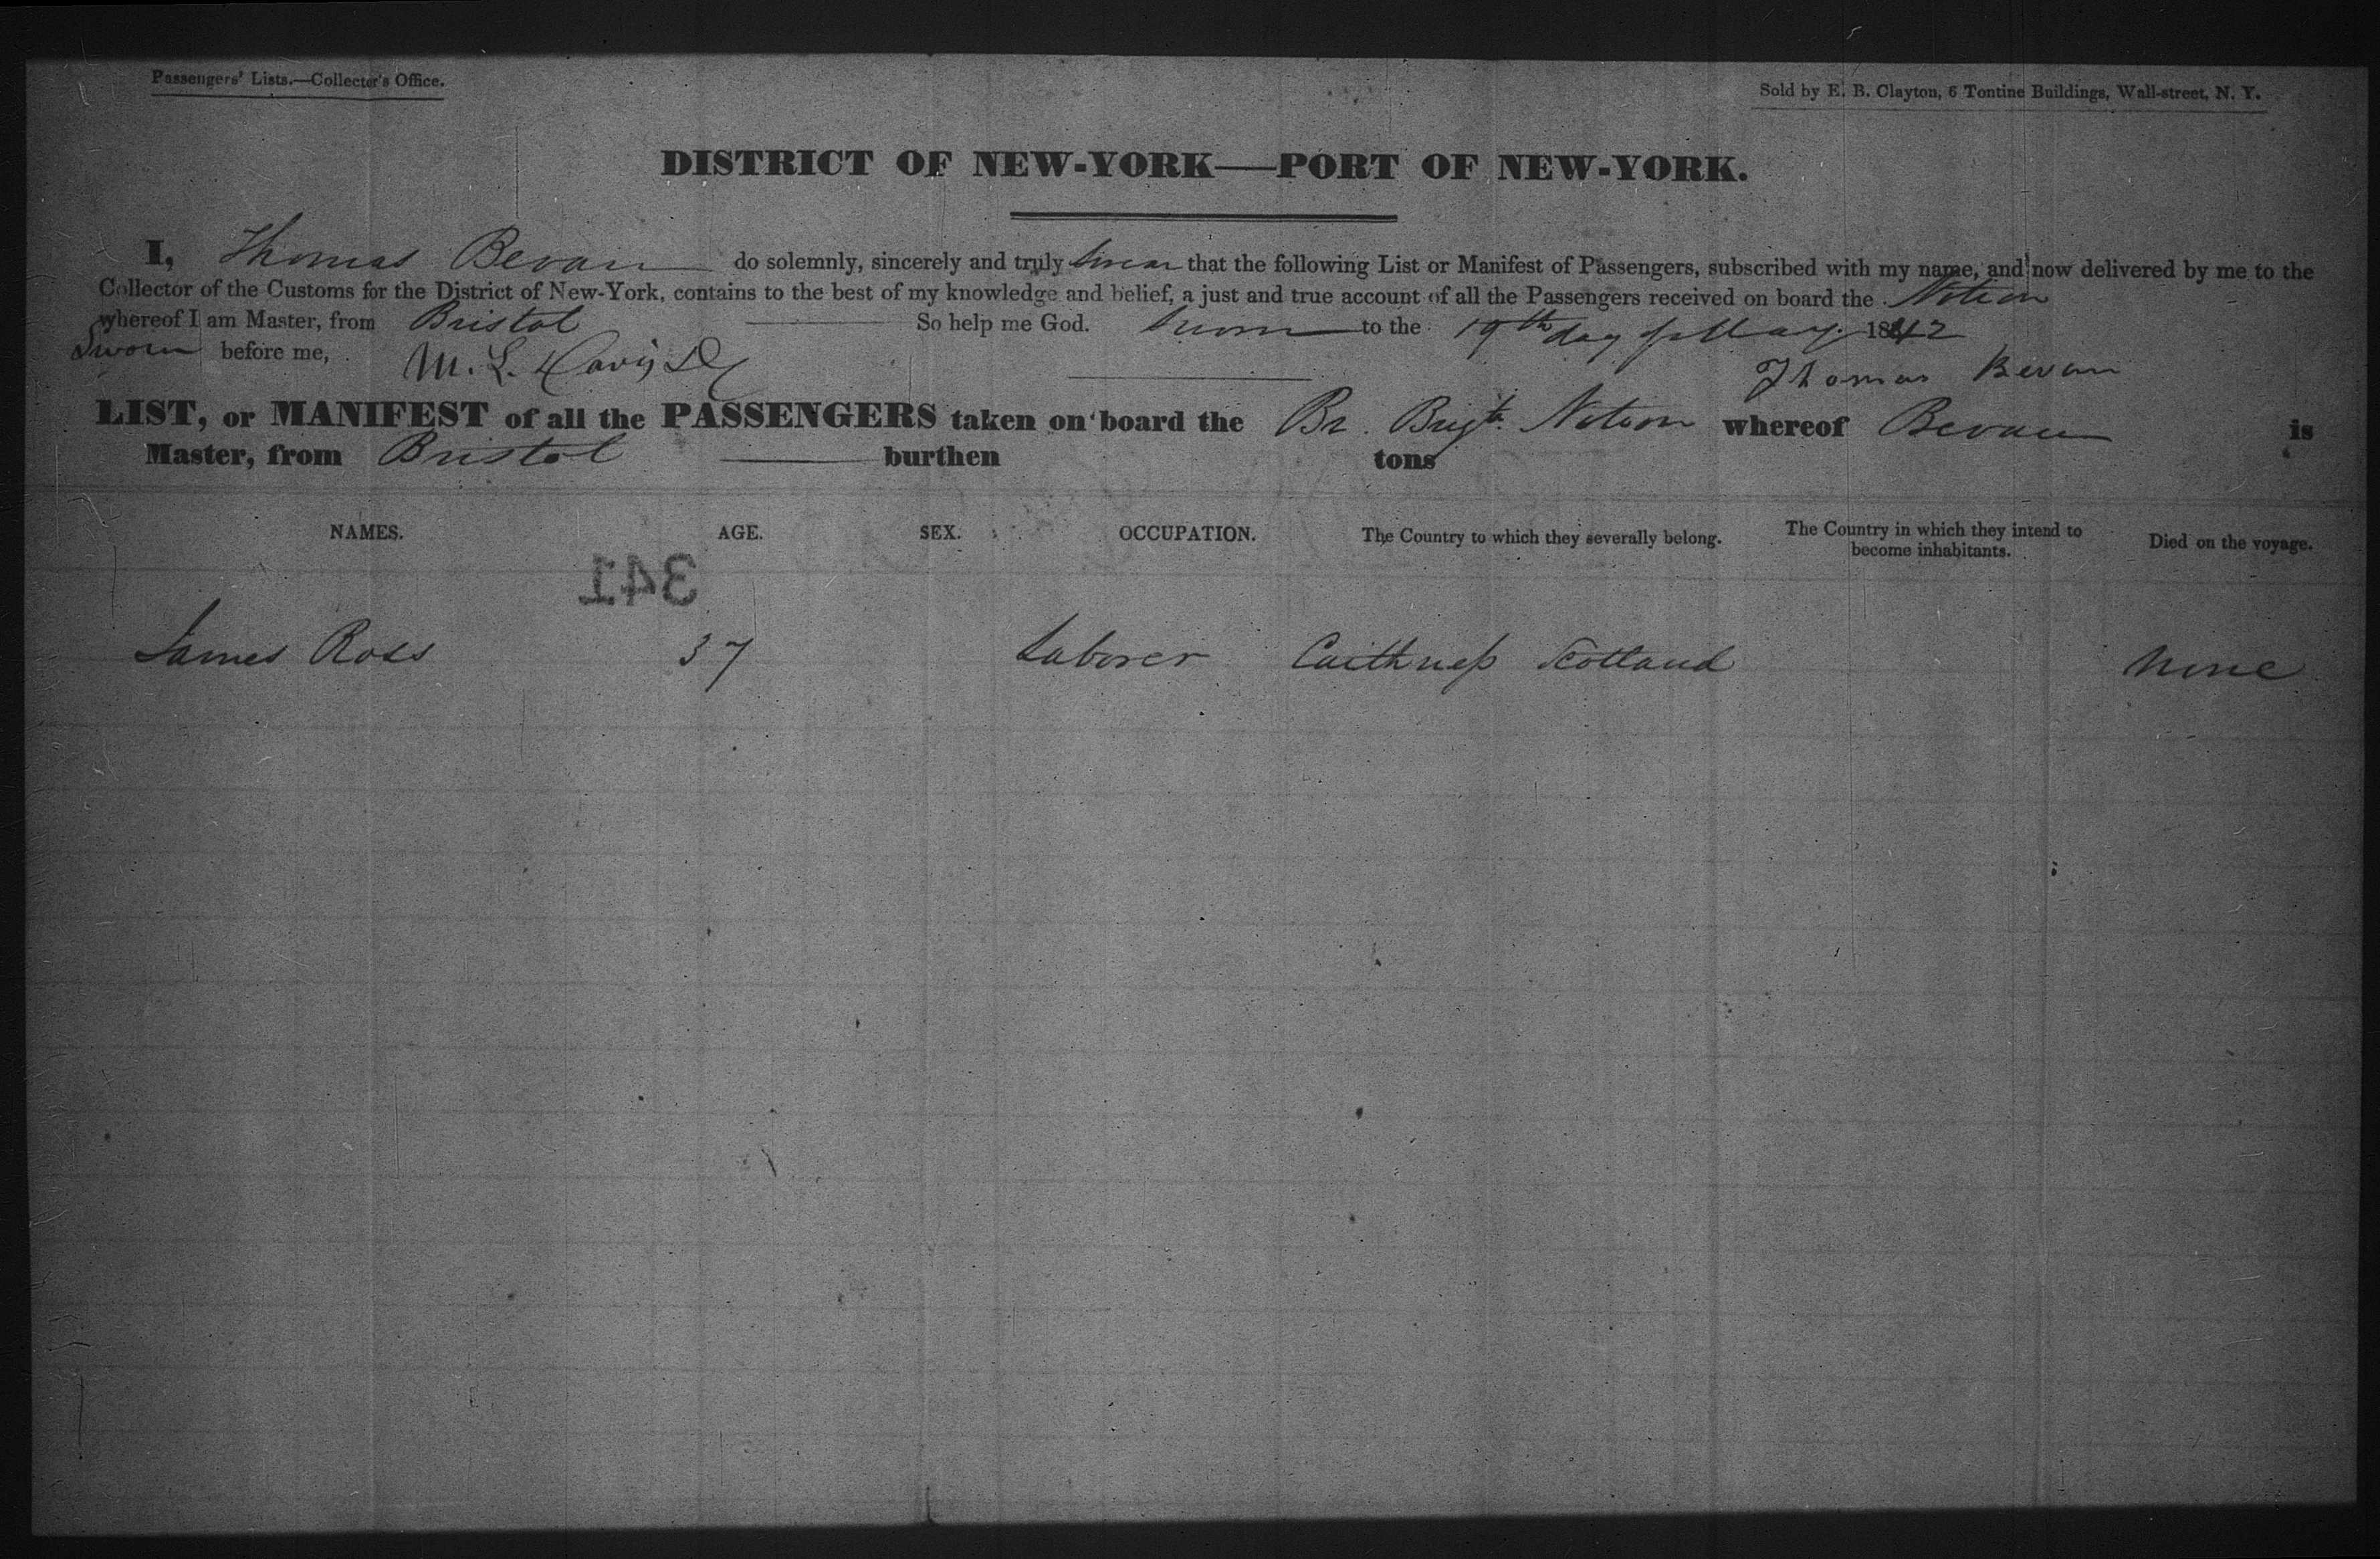 Passengers' Lists.—Collector's Office.
Sold by E. B. Clayton, 6 Tontine Buildings, Wall-street, N. Y.
DISTRICT OF NEW-YORK—PORT OF NEW-YORK.
I, Thomas Bevan do solemnly, sincerely and truly swear that the following List or Manifest of Passengers, subscribed with my name, and now delivered by me to the
Collector of the Customs for the District of New-York, contains to the best of my knowledge and belief, a just and true account of all the Passengers received on board the
whereof I am Master, from Bristol So help me God. Sworn to the 19th day of May 1842
Sworn before me, M. L. Davis Thomas Bevan
LIST, or MANIFEST of all the PASSENGERS taken on board the Br. Brigt. whereof Bevan is
Master, from Bristol burthen tons
NAMES. AGE. SEX. OCCUPATION. The Country to which they severally belong. The Country in which they intend to become inhabitants. Died on the voyage.
341
James Ross 37 Laborer Caithness Scotland None